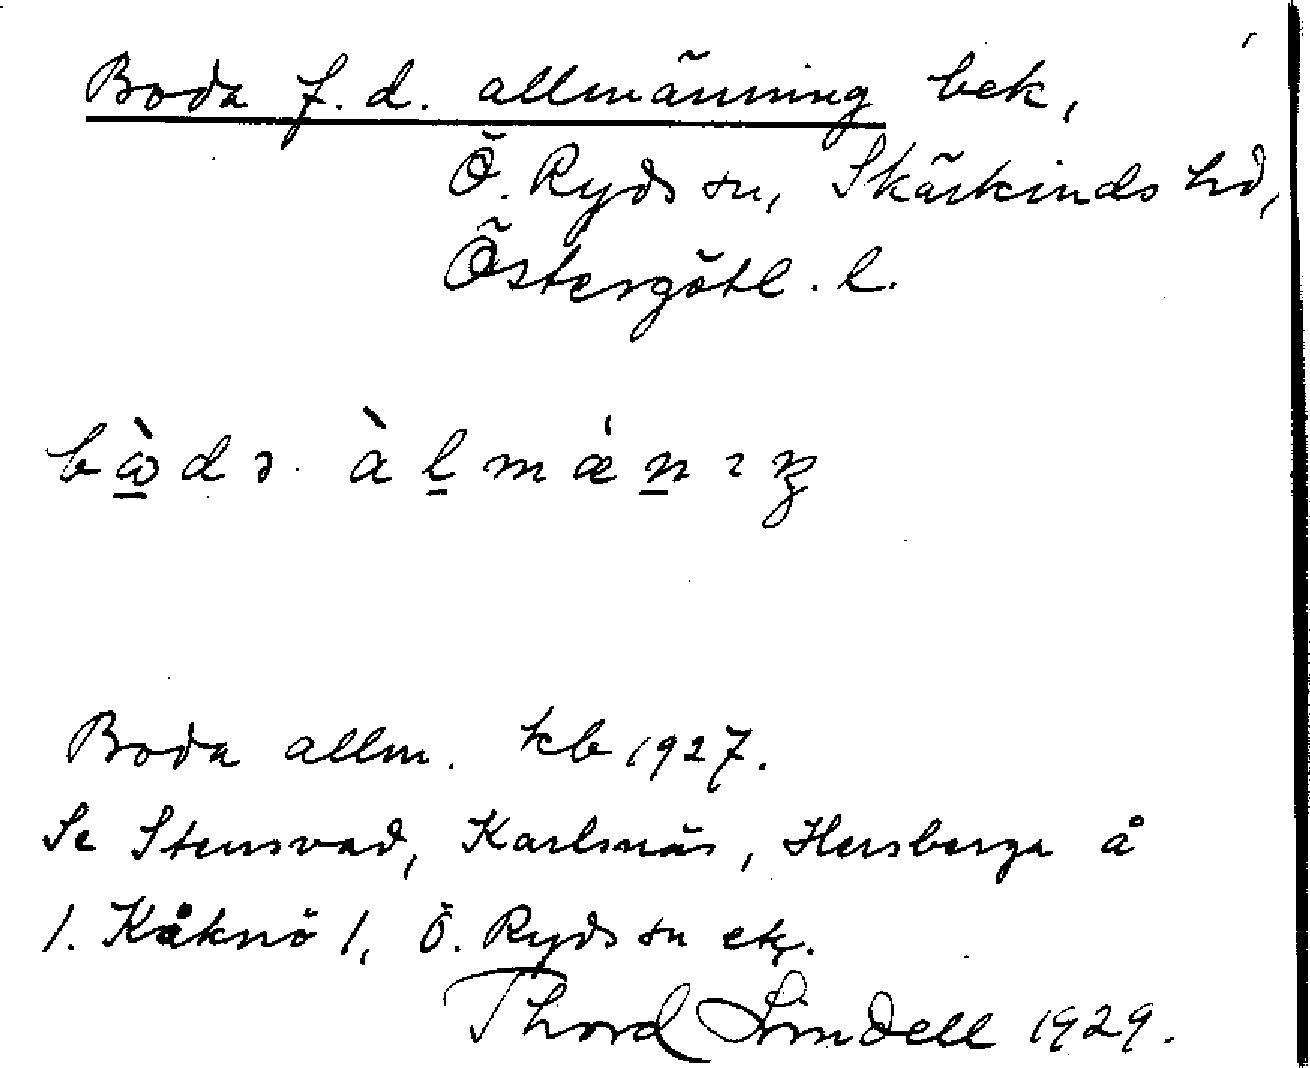 Boda f.d. allmänning bek,
Ö. Ryds sn, Skärkinds hd,
Östergötl. l.
Boda allm. kb 1927.
Se Stensvad, Karlsnäs, Hersberga å
1. Kåknö 1, Ö. Ryds sn ek.
Thord Lindell 1929.